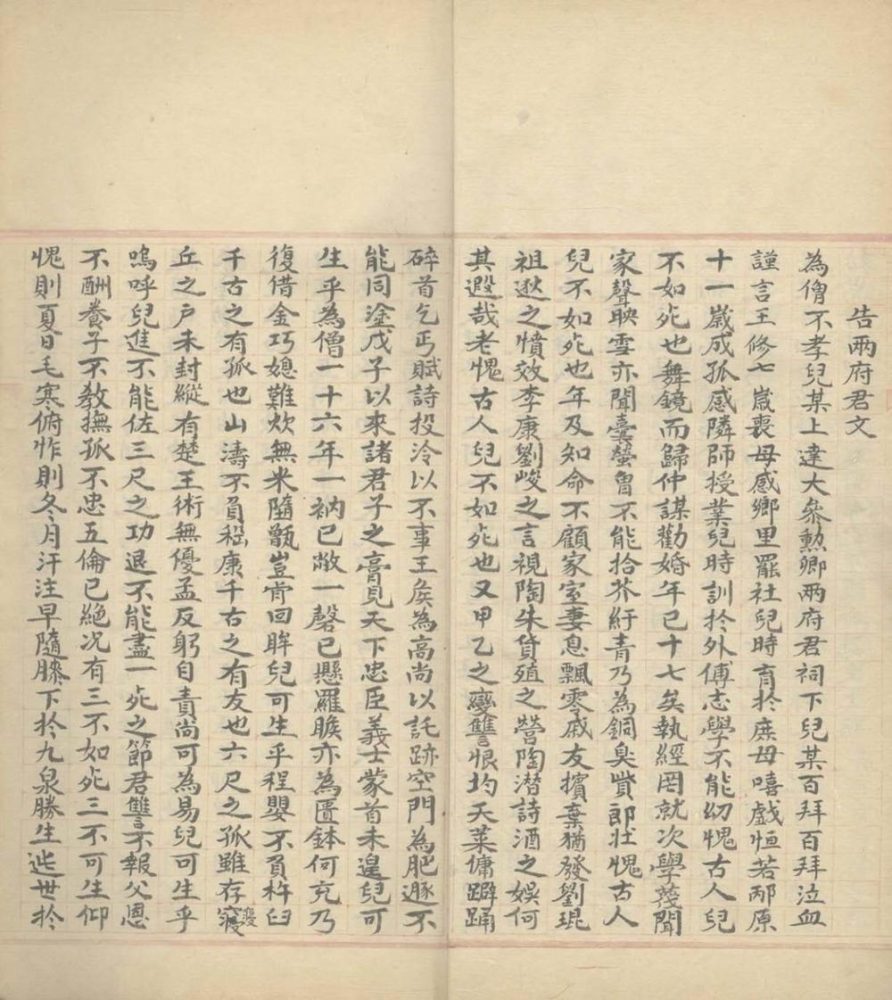 告兩府君文
為僧不孝兒某上達大參勲卿兩府君祠下兒某百拜百拜泣血
謹言王修七歲喪母感鄉里罷社兒時育於庶母嘻戲恒若邴原
十一歲成孤感隣師授業兒時訓於外傅志學不能幼愧古人兒
不如死也舞鏡而歸仲謀勸婚年已十七矣執經罔就次學蔑聞
家聲映雪亦聞囊螢曾不能拾芥紆青乃為銅臭貲郎壯愧古人
兒不如死也年及知命不顧家室妻息飄零戚友擯棄猶發劉琨
祖逖之憤效李康劉峻之言視陶朱貨殖之營陶潛詩酒之娛何
其遐哉老愧古人兒不如死也又甲乙之變讐恨均天菜傭躃踊
碎首乞丐賦詩投泠以不事王矦為高尚以託跡空門為肥遯不
能同塗戊子以來諸君子之膏見天下忠臣義士蒙首未遑兒可
生乎為僧一十六年一衲已敝一磬已懸羅睺亦為匱鉢何充乃
復借金巧媳難炊無米隨甑豈肯回眸兒可生乎程嬰不負杵臼
千古之有孤也山濤不負嵇康千古之有友也六尺之孤雖存寢
丘之戶未封縱有楚王術無優孟反躬自責尚可為易兒可生乎
嗚呼兒進不能佐三尺之功退不能盡一死之節君讐不報父恩
不酬養子不教撫孤不忠五倫已絕况有三不如死三不可生仰
愧則夏日毛寒俯怍則冬月汗注早隨膝下於九泉勝生逝世於